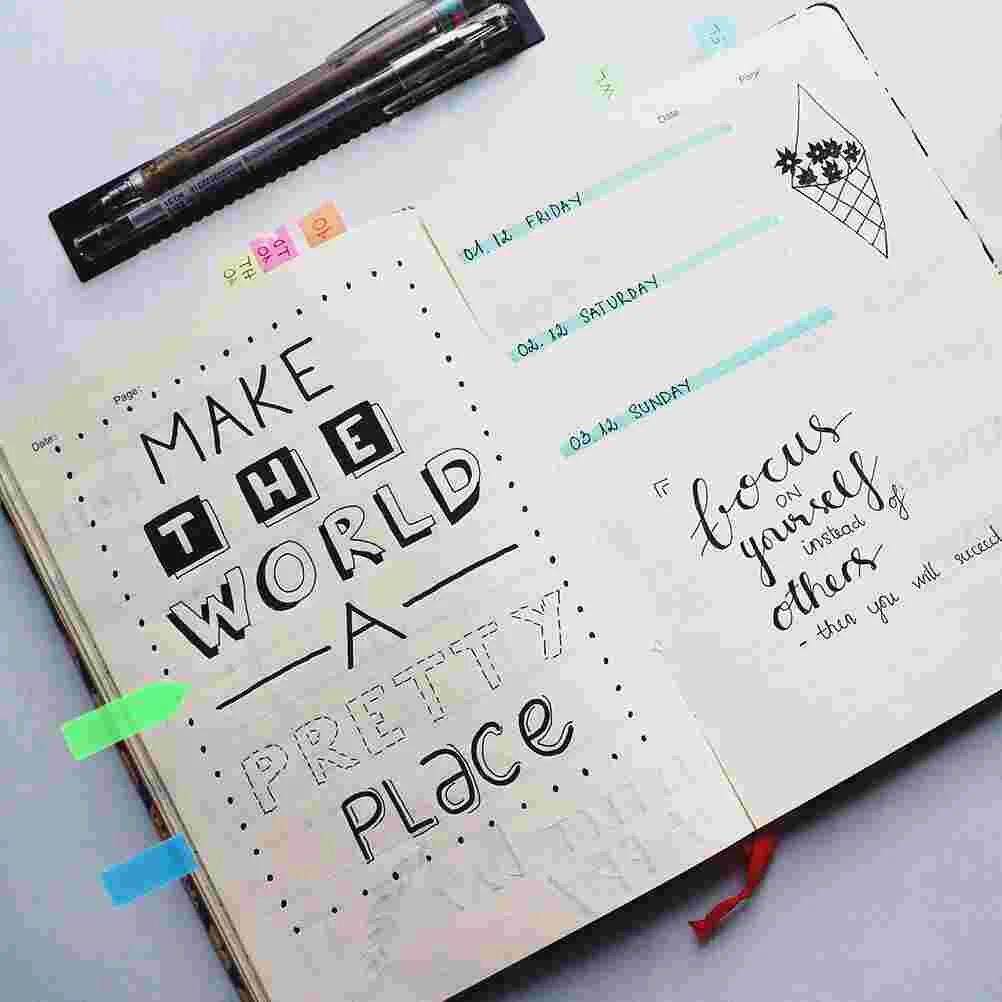 Date:
Page:
MAKE
THE
WORLD
A
PRETTY
PLAcE
Date
Page
01.12 FRIDAY
02.12 SATURDAY
03.12 SUNDAY
focus
ON
yourself
instead of
others
- then you will succeed